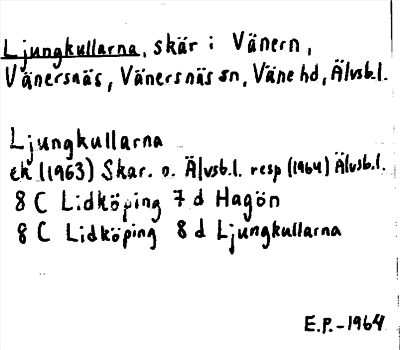 Ljungkullarna, skär i Vänern,
Vänersnäs, Vänersnäs sn, Väne hd, Älvsb.l.
Ljungkullarna
ek (1963) Skar. o. Älvsb.l. resp (1964) Älvsb.l.
8 C Lidköping 7 d Hagön
8 C Lidköping 8 d Ljungkullarna
E.P.-1964